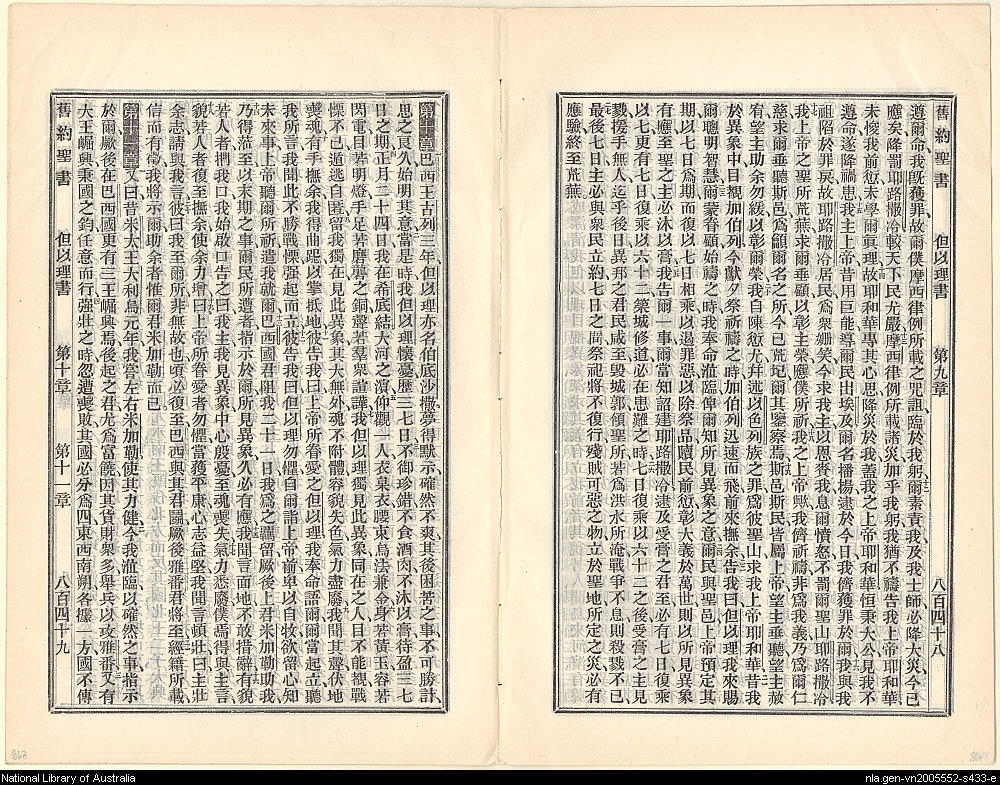 舊約聖書 但以理書 第九章 八百四十八
遵爾命我旣獲罪故爾僕摩西律例所載之咒詛臨於我躬爾素責我及我士師必降大災今已
應矣降罰耶路撒冷較天下民尤嚴摩西律例所載諸災加乎我躬我猶不禱告我上帝耶和華
未悛我前愆未學爾眞理故耶和華專其心思降災於我蓋我之上帝耶和華恒秉大公見我不
遵命遂降禍患我主上帝昔用巨能導爾民出埃及爾名播揚逮於今日我儕獲罪於爾我與我
祖陷於罪戾故耶路撒冷居民爲衆姍矣今求我主以恩眷我息爾憤怒不罰爾聖山耶路撒冷
我上帝之聖所荒蕪求爾垂顧以彰主榮應僕所祈我之上帝與我儕祈禱非爲我義乃爲爾仁
慈求爾垂聽斯邑爲籲爾名之所今已荒圮爾其鑒察焉斯邑斯民皆屬上帝望主垂聽望主赦
宥望主助余勿緩以彰爾榮我自陳愆尤幷述以色列族之罪爲彼聖山求我上帝耶和華昔我
於異象中目覩加伯列今獻夕祭祈禱之時加伯列迅速而飛前來撫余告我曰但以理我來賜
爾聰明智慧爾蒙眷顧始禱之時我奉命涖臨俾爾知所見異象之意爾民與聖邑上帝預定其
期以七日爲期而復以七日相乘以遏罪惡以除祭品贖民前愆彰大義於萬世則以所見異象
有應至聖之主必沐以膏我告爾一事爾當知詔建耶路撒冷逮及受膏之君至必有七日復乘
以七更有七日復乘以六十二築城修道必在患難之時七日復乘以六十二之後受膏之主見
戮援手無人迄乎後日異邦之君民咸至毀城郭傾聖所若爲洪水所淹戰爭不息則殺戮不已
最後七日主必與衆民立約七日之間祭祀將不復行殘賊可惡之物立於聖地所定之災必有
應驗終至荒蕪
第十章 巴西王古列三年但以理亦名伯底沙撒夢得默示確然不爽其後困苦之事不可勝計
思之良久始明其意當是時我但以理懷憂歷三七日不御珍錯不食酒肉不沐以膏待盈三七
日之期正月二十四日我在希底結大河之濱仰觀一人衣枲衣腰束烏法兼金身若黃玉容若
閃電目若明燈手足若磨厲之銅聲若羣衆諠譁我但以理獨見此異象同在之人目不能視戰
慄不已遁逃自匿留我獨在見此異象其大無外魂不附體容貌失色氣力盡廢我聞其聲伏地
喪魂有手撫余我得曲跽以掌抵地彼告我曰上帝所眷愛之但以理我奉命語爾爾當起立聽
我所言我聞此不勝戰慄强起而立彼告我曰但以理勿懼自爾詣上帝前卑以自牧欲留心知
未來事上帝聽爾所祈遣我就爾巴西國君阻我二十一日我爲之羈留厥後上君米加勒助我
乃得涖至以末期之事爾民所遭者指示於爾所見異象久必有應我聞言面地不敢措辭有貌
若人者捫我口我始啟口告之曰我主我見異象中心殷憂至魂喪失氣力悉廢僕焉得與主言
貌若人者復至撫余使余力增曰上帝所眷愛者勿懼當獲平康心志益堅我聞言頓壯曰主壯
余志請與我言彼曰我至爾所非無故也頃必復至巴西與其君鬭厥後雅番君將至經籍所載
信而有徵我將示爾助余者惟爾君米加勒而已
第十一章 又曰昔米太王大利烏元年我嘗左右米加勒使其力健今我涖臨以確然之事指示
於爾厥後在巴西國更有三王崛興焉後起之君尤爲富饒因其貨財衆多舉兵以攻雅番又有
大王崛興秉國之鈞任意而行强壯之時忽遭喪敗其國必分爲四東西南朔各據一方國不傳
舊約聖書 但以理書 第十章 第十一章 八百四十九
National Library of Australia
nla.gen-vn2005552-s433-e